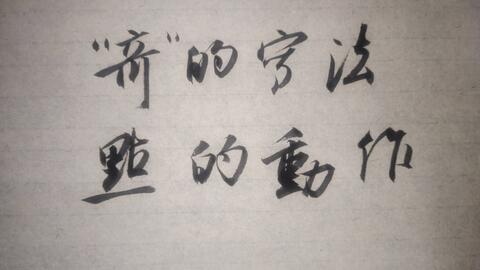 "齐"的写法
點的動作